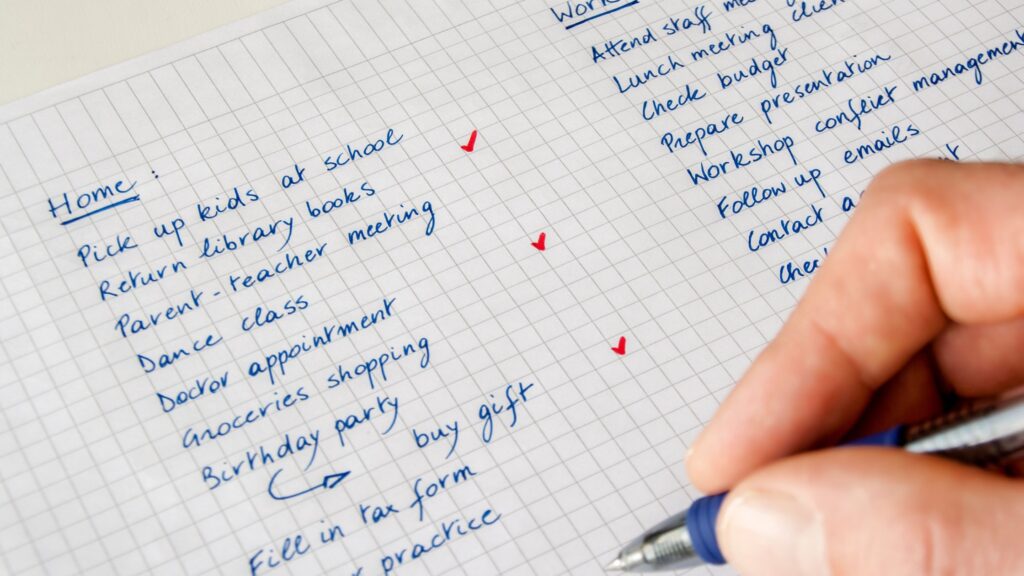 Home :
Pick up kids at school
Return library books
Parent-teacher meeting
Dance class
Doctor appointment
Groceries shopping
Birthday party
buy gift
Fill in tax form
practice
Work
Attend staff
Lunch meeting client
Check budget
Prepare presentation
Workshop conflict management
Follow up emails
Contact